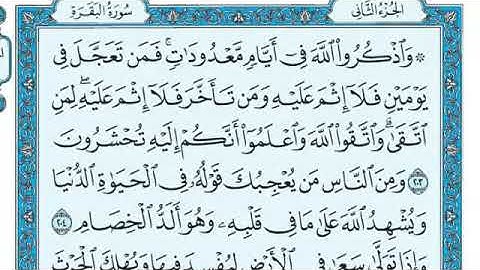 الجزء الثاني سورة البقرة
۞ وَاذْكُرُوا اللَّهَ فِي أَيَّامٍ مَّعْدُودَاتٍ ۚ فَمَن تَعَجَّلَ فِي
يَوْمَيْنِ فَلَا إِثْمَ عَلَيْهِ وَمَن تَأَخَّرَ فَلَا إِثْمَ عَلَيْهِ ۚ لِمَنِ
اتَّقَىٰ ۗ وَاتَّقُوا اللَّهَ وَاعْلَمُوا أَنَّكُمْ إِلَيْهِ تُحْشَرُونَ
٢٠٣ وَمِنَ النَّاسِ مَن يُعْجِبُكَ قَوْلُهُ فِي الْحَيَاةِ الدُّنْيَا
وَيُشْهِدُ اللَّهَ عَلَىٰ مَا فِي قَلْبِهِ وَهُوَ أَلَدُّ الْخِصَامِ ٢٠٤
وَإِذَا تَوَلَّىٰ سَعَىٰ فِي الْأَرْضِ لِيُفْسِدَ فِيهَا وَيُهْلِكَ الْحَرْثَ